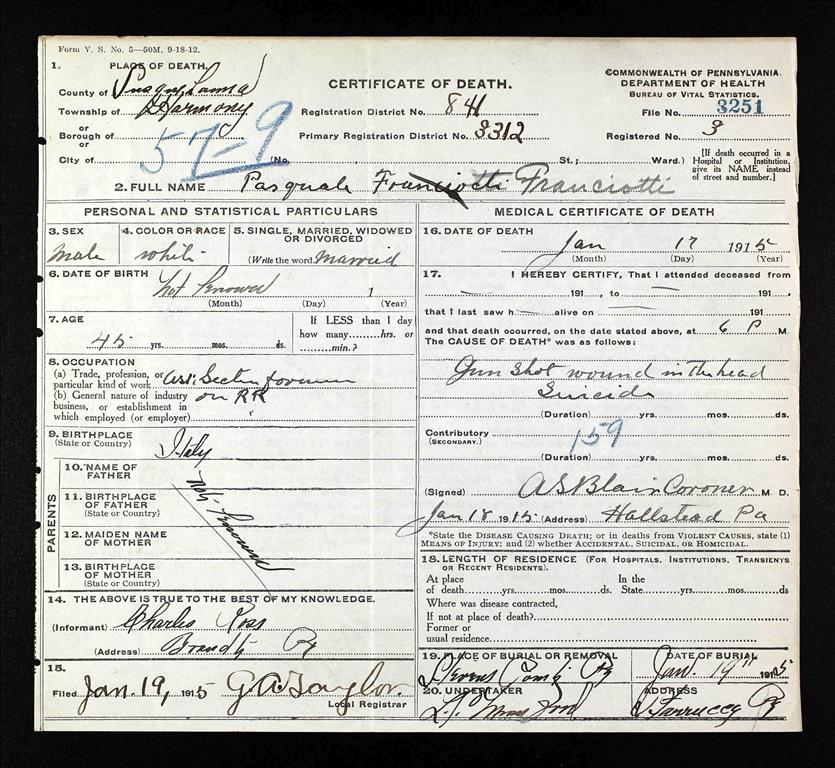 Form V. S. No. 5—50M. 9-18-12.
1. PLACE OF DEATH.
County of Susquehanna
Township of Harmony
or
Borough of
or
City of (No. , St.; Ward.)
57-9
CERTIFICATE OF DEATH.
Registration District No. 841
Primary Registration District No. 3312
COMMONWEALTH OF PENNSYLVANIA.
DEPARTMENT OF HEALTH
BUREAU OF VITAL STATISTICS.
File No. 3251
Registered No. 3
[If death occurred in a
Hospital or Institution,
give its NAME instead
of street and number.]
2. FULL NAME Pasquale Franciotti Franciotti
PERSONAL AND STATISTICAL PARTICULARS
3. SEX
Male
4. COLOR OR RACE
White
5. SINGLE, MARRIED, WIDOWED
OR DIVORCED
(Write the word) Married
6. DATE OF BIRTH
Not Known 1
(Month) (Day) (Year)
7. AGE
45 yrs. mos. ds.
If LESS than 1 day
how many hrs. or
min.?
8. OCCUPATION
(a) Trade, profession, or
particular kind of work Asst. Section foreman
(b) General nature of industry
business, or establishment in
which employed (or employer) on RR
9. BIRTHPLACE
(State or Country) Italy
PARENTS
10. NAME OF
FATHER
11. BIRTHPLACE
OF FATHER
(State or Country)
12. MAIDEN NAME
OF MOTHER
13. BIRTHPLACE
OF MOTHER
(State or Country)
Not Known
14. THE ABOVE IS TRUE TO THE BEST OF MY KNOWLEDGE.
(Informant) Charles Ross
(Address) Brandt Pa
15.
Filed Jan. 19, 1915 G A Taylor.
Local Registrar
MEDICAL CERTIFICATE OF DEATH
16. DATE OF DEATH
Jan 17 1915
(Month) (Day) (Year)
17. I HEREBY CERTIFY, That I attended deceased from
— 191 , to — 191 ,
that I last saw h— alive on — 191
and that death occurred, on the date stated above, at 6 P M
The CAUSE OF DEATH* was as follows:
Gun shot wound in the head
Suicide
(Duration) yrs. mos. ds.
Contributory
(SECONDARY.)
159
(Duration) yrs. mos. ds.
(Signed) A S Blair Coroner M. D.
Jan 18 1915 (Address) Hallstead Pa
*State the DISEASE CAUSING DEATH; or in deaths from VIOLENT CAUSES, state (1)
MEANS OF INJURY; and (2) whether ACCIDENTAL, SUICIDAL, OR HOMICIDAL.
18. LENGTH OF RESIDENCE (FOR HOSPITALS, INSTITUTIONS, TRANSIENTS
OR RECENT RESIDENTS).
At place In the
of death yrs. mos. ds. State yrs. mos. ds
Where was disease contracted,
If not at place of death?
Former or
usual residence.
19. PLACE OF BURIAL OR REMOVAL
Stevens Pa
DATE OF BURIAL
Jan. 19" 1915
20. UNDERTAKER
ADDRESS
Pa